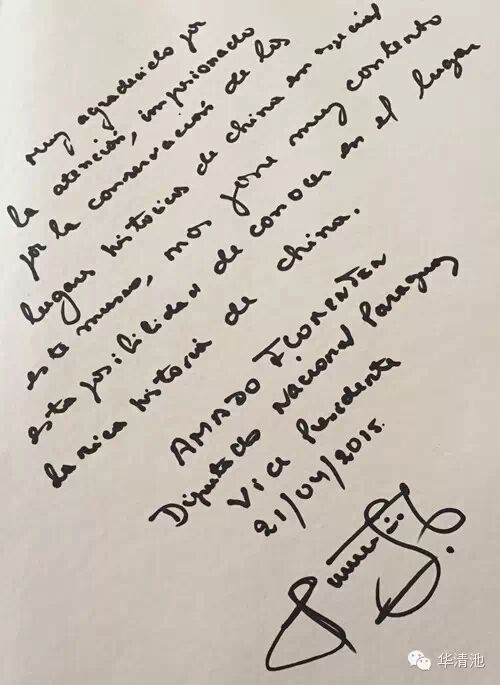 Muy agradecido por
la atención, impresionado
por la conservación de los
lugares históricos de china en especial
este museo, nos pone muy contento
esta posibilidad de conocer en el lugar
la rica historia de china.
AMADO FLORENTIN
Diputado Nacional Paraguay
Vice Presidente
21/04/2015.
华清池